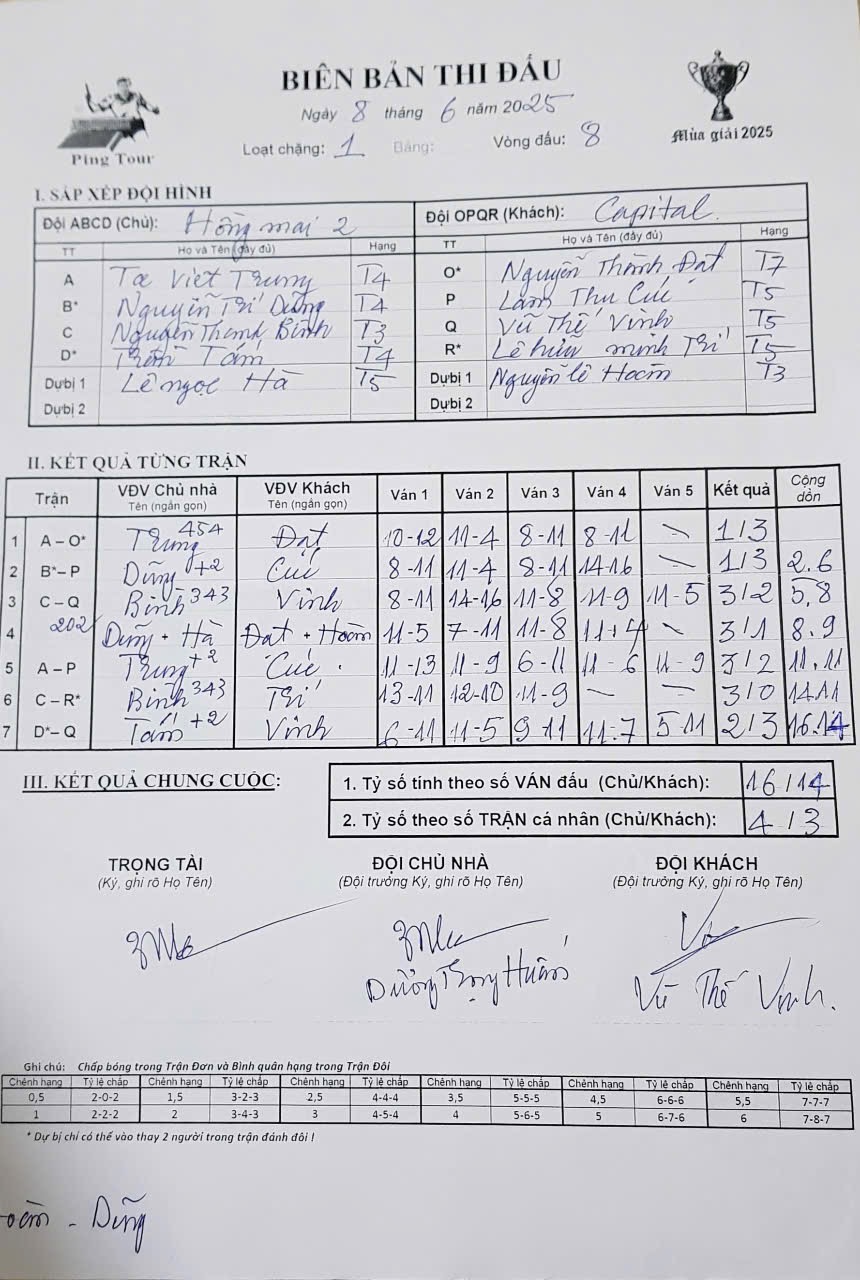 BIÊN BẢN THI ĐẤU
Ngày 8 tháng 6 năm 2025
Ping Tour
Loạt chặng: 1 Bảng: Vòng đấu: 8
Mùa giải 2025
I. SẮP XẾP ĐỘI HÌNH
Đội ABCD (Chủ): Hồng mai 2 Đội OPQR (Khách): Capital.
TT Họ và Tên (đầy đủ) Hạng TT Họ và Tên (đầy đủ) Hạng
A Tạ Việt Trung T4 O* Nguyễn Thành Đạt T7
B* Nguyễn Trí Dũng T4 P Lâm Thu Cúc T5
C Nguyễn Thanh Bình T3 Q Vũ Thế Vinh T5
D* Trần Tám T4 R* Lê hữu minh Trí T5
Dự bị 1 Lê ngọc Hà T5 Dự bị 1 Nguyễn lê Hoàn T3
Dự bị 2 Dự bị 2
II. KẾT QUẢ TỪNG TRẬN
Trận VĐV Chủ nhà Tên (ngắn gọn) VĐV Khách Tên (ngắn gọn) Ván 1 Ván 2 Ván 3 Ván 4 Ván 5 Kết quả Cộng dồn
1 A – O* Trung 454 Đạt 10-12 11-4 8-11 8-11 \ 1/3
2 B* – P Dũng +2 Cúc 8-11 11-4 8-11 14-16 \ 1/3 2.6
3 C – Q Bình 343 Vinh 8-11 14-16 11-8 11-9 11-5 3/2 5.8
4 202 Dũng + Hà Đạt + Hoàn 11-5 7-11 11-8 11-4 \ 3/1 8.9
5 A – P Trung +2 Cúc. 11-13 11-9 6-11 11-6 11-9 3/2 11.11
6 C – R* Bình 343 Trí 13-11 12-10 11-9 – – 3/0 14.11
7 D* – Q Tám +2 Vinh 6-11 11-5 9-11 11-7 5-11 2/3 16.14
III. KẾT QUẢ CHUNG CUỘC:
1. Tỷ số tính theo số VÁN đấu (Chủ/Khách): 16/14
2. Tỷ số theo số TRẬN cá nhân (Chủ/Khách): 4/3
TRỌNG TÀI ĐỘI CHỦ NHÀ ĐỘI KHÁCH
(Ký, ghi rõ Họ Tên) (Đội trưởng Ký, ghi rõ Họ Tên) (Đội trưởng Ký, ghi rõ Họ Tên)
Vũ Thế Vinh.
Ghi chú: Chấp bóng trong Trận Đơn và Bình quân hạng trong Trận Đôi
Chênh hạng Tỷ lệ chấp Chênh hạng Tỷ lệ chấp Chênh hạng Tỷ lệ chấp Chênh hạng Tỷ lệ chấp Chênh hạng Tỷ lệ chấp Chênh hạng Tỷ lệ chấp
0,5 2-0-2 1,5 3-2-3 2,5 4-4-4 3,5 5-5-5 4,5 6-6-6 5,5 7-7-7
1 2-2-2 2 3-4-3 3 4-5-4 4 5-6-5 5 6-7-6 6 7-8-7
* Dự bị chỉ có thể vào thay 2 người trong trận đánh đôi !
- Dũng